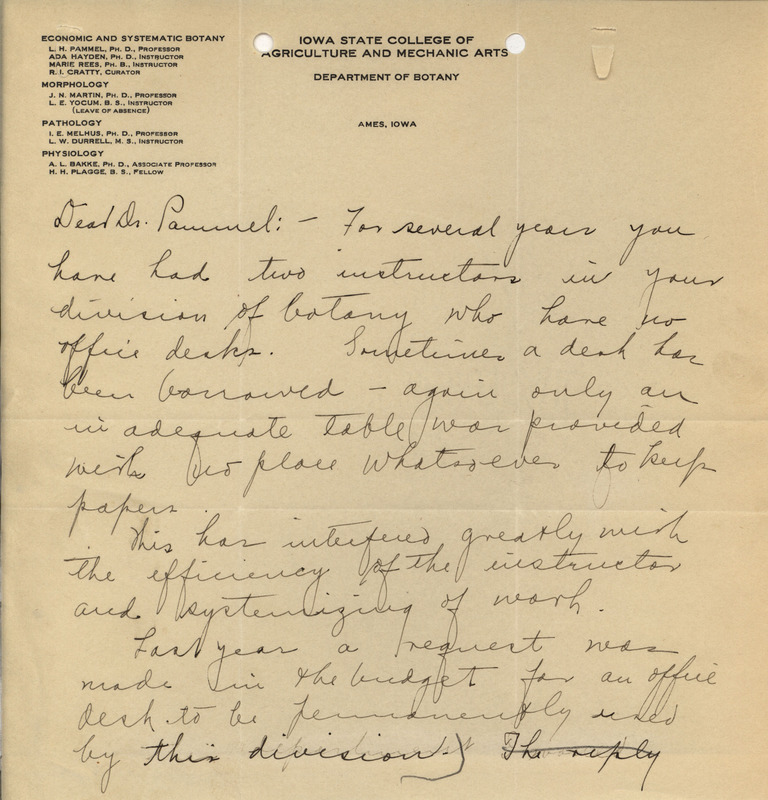 ECONOMIC AND SYSTEMATIC BOTANY
L. H. PAMMEL, PH. D., PROFESSOR
ADA HAYDEN, PH. D., INSTRUCTOR
MARIE REES, PH. B., INSTRUCTOR
R. I. CRATTY, CURATOR
MORPHOLOGY
J. N. MARTIN, PH. D., PROFESSOR
L. E. YOCUM, B. S., INSTRUCTOR
(LEAVE OF ABSENCE)
PATHOLOGY
I. E. MELHUS, PH. D., PROFESSOR
L. W. DURRELL, M. S., INSTRUCTOR
PHYSIOLOGY
A. L. BAKKE, PH. D., ASSOCIATE PROFESSOR
H. H. PLAGGE, B. S., FELLOW
IOWA STATE COLLEGE OF
AGRICULTURE AND MECHANIC ARTS
DEPARTMENT OF BOTANY
AMES, IOWA
Dear Dr. Pammel: – For several years you
have had two instructors in your
division of botany who have no
office desks. Sometimes a desk has
been borrowed – again only an
inadequate table was provided
with no place whatsoever to keep
papers.
This has interfered greatly with
the efficiency of the instructor
and systemizing of work.
Last year a request was
made in the budget for an office
desk to be permanently used
by this division.) The reply